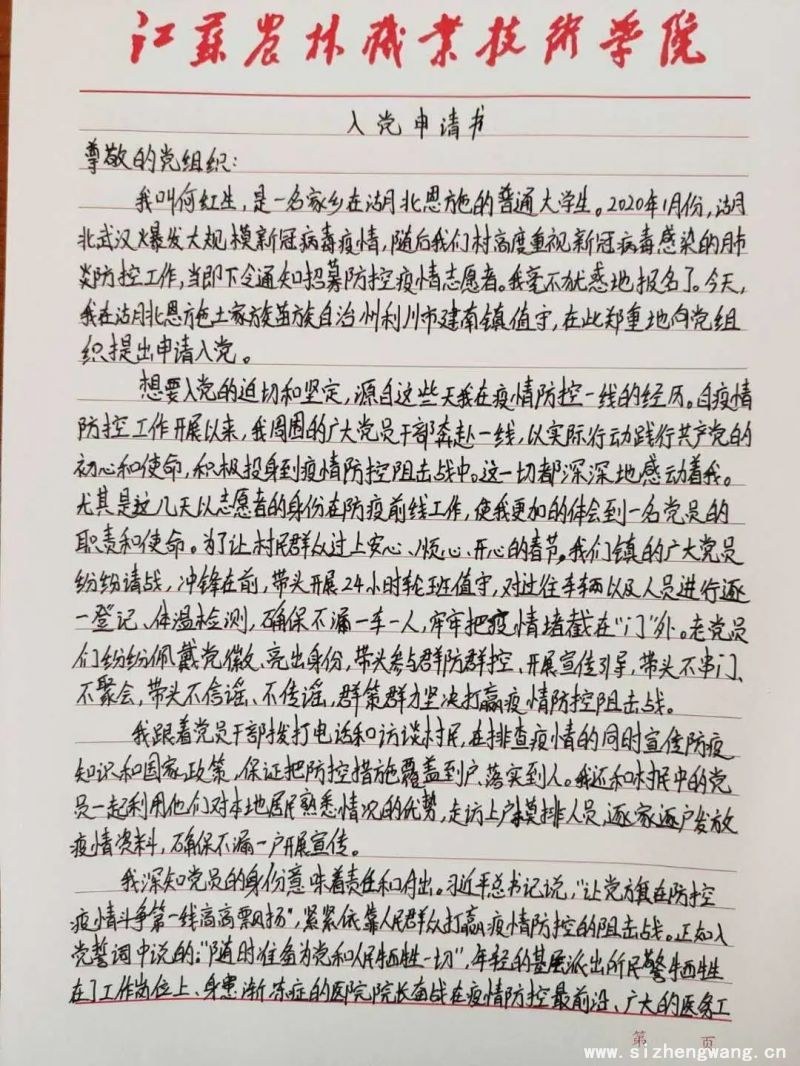 江苏农林职业技术学院
入党申请书
尊敬的党组织：
我叫何红生，是一名家乡在湖北恩施的普通大学生。2020年1月份，湖
北武汉爆发大规模新冠病毒疫情，随后我们村高度重视新冠病毒感染的肺
炎防控工作，当即下令通知招募防控疫情志愿者。我毫不犹惑地报名了。今天，
我在湖北恩施土家族苗族自治州利川市建南镇值守，在此郑重地向党组
织提出申请入党。
想要入党的迫切和坚定，源自这些天我在疫情防控一线的经历。自疫情
防控工作开展以来，我周围的广大党员干部奔赴一线，以实际行动践行共产党的
初心和使命，积极投身到疫情防控阻击战中。这一切都深深地感动着我。
尤其是这几天以志愿者的身份在防疫前线工作，使我更加的体会到一名党员的
职责和使命。为了让村民群众过上安心、顺心、开心的春节。我们镇的广大党员
纷纷请战，冲锋在前，带头开展24小时轮班值守，对过往车辆以及人员进行逐
一登记、体温检测，确保不漏一车一人，牢牢把疫情堵截在“门”外。老党员
们纷纷佩戴党徽、亮出身份，带头参与群防群控、开展宣传引导，带头不串门、
不聚会，带头不信谣、不传谣，群策群力坚决打赢疫情防控阻击战。
我跟着党员干部拨打电话和访谈村民，在排查疫情的同时宣传防疫
知识和国家政策，保证把防控措施覆盖到户、落实到人。我还和村民中的党
员一起利用他们对本地居民熟悉情况的优势，走访上户摸排人员，逐家逐户发放
疫情资料，确保不漏一户开展宣传。
我深知党员的身份意味着责任和付出。习近平总书记说，“让党旗在防控
疫情斗争第一线高高飘扬”，紧紧依靠人民群众打赢疫情防控的阻击战。正如入
党誓词中说的：“随时准备为党和人民牺牲一切”，年轻的基层派出所民警牺牲
在了工作岗位上、身患渐冻症的医院院长奋战在疫情防控最前沿、广大的医务工
第 页
www.sizhengwang.cn